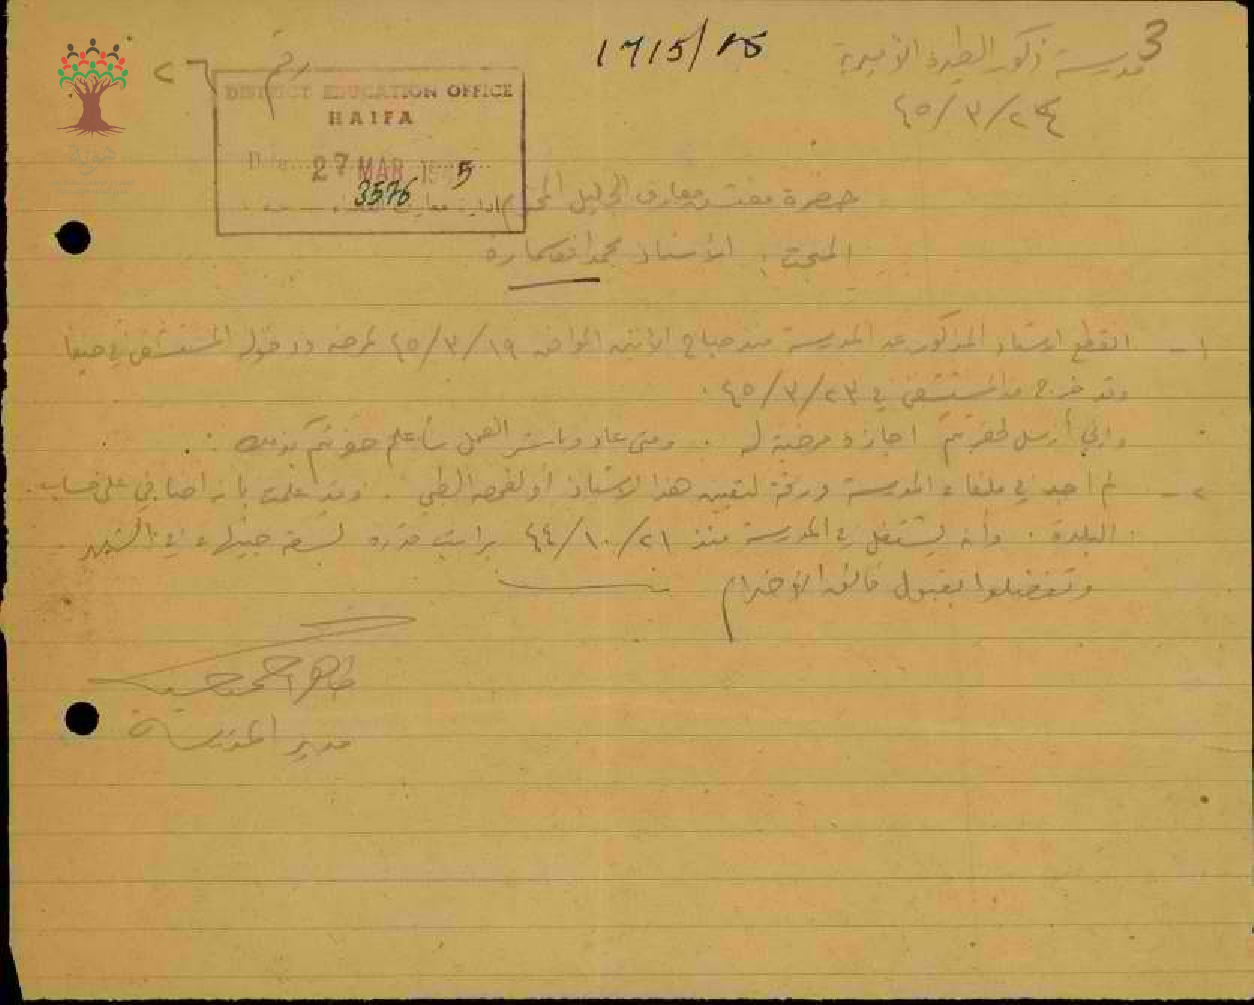 3
1715/25
مدرسة ذكور الطيرة الأميرية
٢٤/٣/٤٥
رقم ٢٦
DISTRICT EDUCATION OFFICE
HAIFA
Date 27 MAR 1945
3576
ادارة معارف لواء
حضرة مفتش معارف الجليل المحترم
المبحث : الأستاذ محمد
١ - انقطع الاستاذ المذكور عن المدرسة منذ صباح الاثنين الموافق ١٩/٣/٤٥ لمرضه ودخوله المستشفى في حيفا
وقد خرج من المستشفى في ٢٣/٣/٤٥ .
واني أرسل لحضرتكم اجازة مرضية له . ومتى عاد وباشر العمل سأعلم حضرتكم بذلك .
٢ - لم اجد في ملفات المدرسة ورقة لتعيين هذا الاستاذ أو لفحصه الطبي . وقد علمت بانه اضافي على حساب
البلدة . وأنه يشتغل في المدرسة منذ ٢١/١٠/٤٤ براتب قدره تسعة جنيهات في الشهر
وتفضلوا بقبول فائق الاحترام
طاهر احمد
مدير المدرسة
هوية